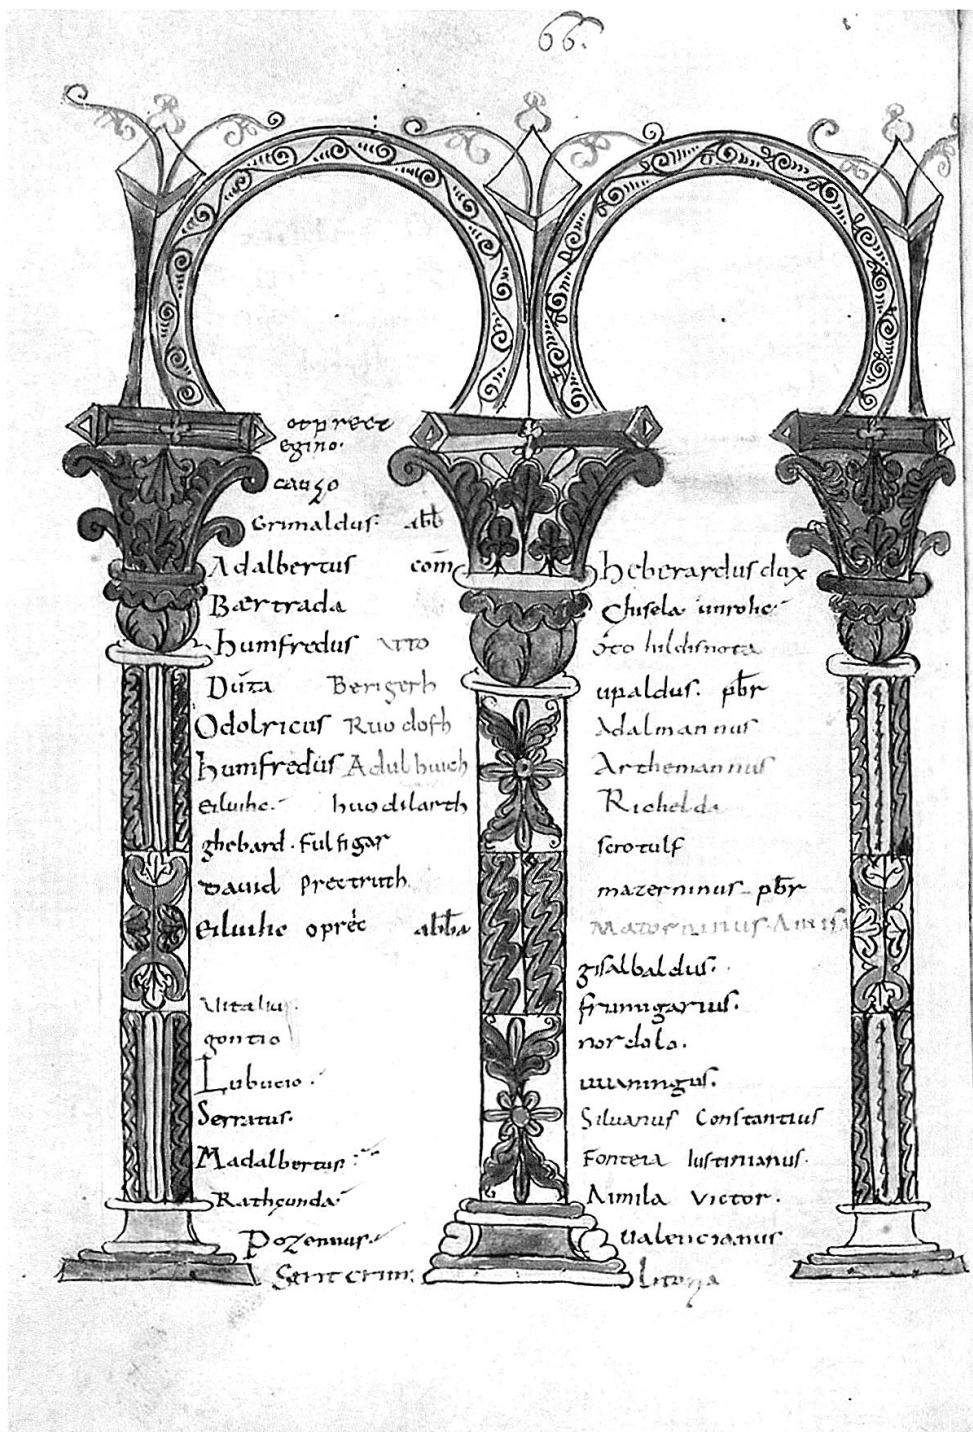 66.
otprect
egino.
cauzo
Grimaldus. abb
Adalbertus com
Bærtrada
humfredus Atto
Duza Berigerh
Odolricus Ruodolh
humfredus Adulhuich
eiluihc. huodilarth
ghebard. fulfigar
David prectruth
eiluihc oprec abba
Vitalius.
gontio
Lubucio.
Serratus.
Madalbertus.
Rathgunda
Pozennus.
heberardus dux
Chisela unrohc
oto hildisnota
upaldus. pbr
Adalmannus
Arthemannus
Richelda
scrotulf
mazerninus pbr
Maternınus.
gisalbaldus.
frumigarius.
nordolo.
uuaningus.
Siluanus Constantius
Fonteia Iustinianus.
Aimila Victor.
Ualencianus